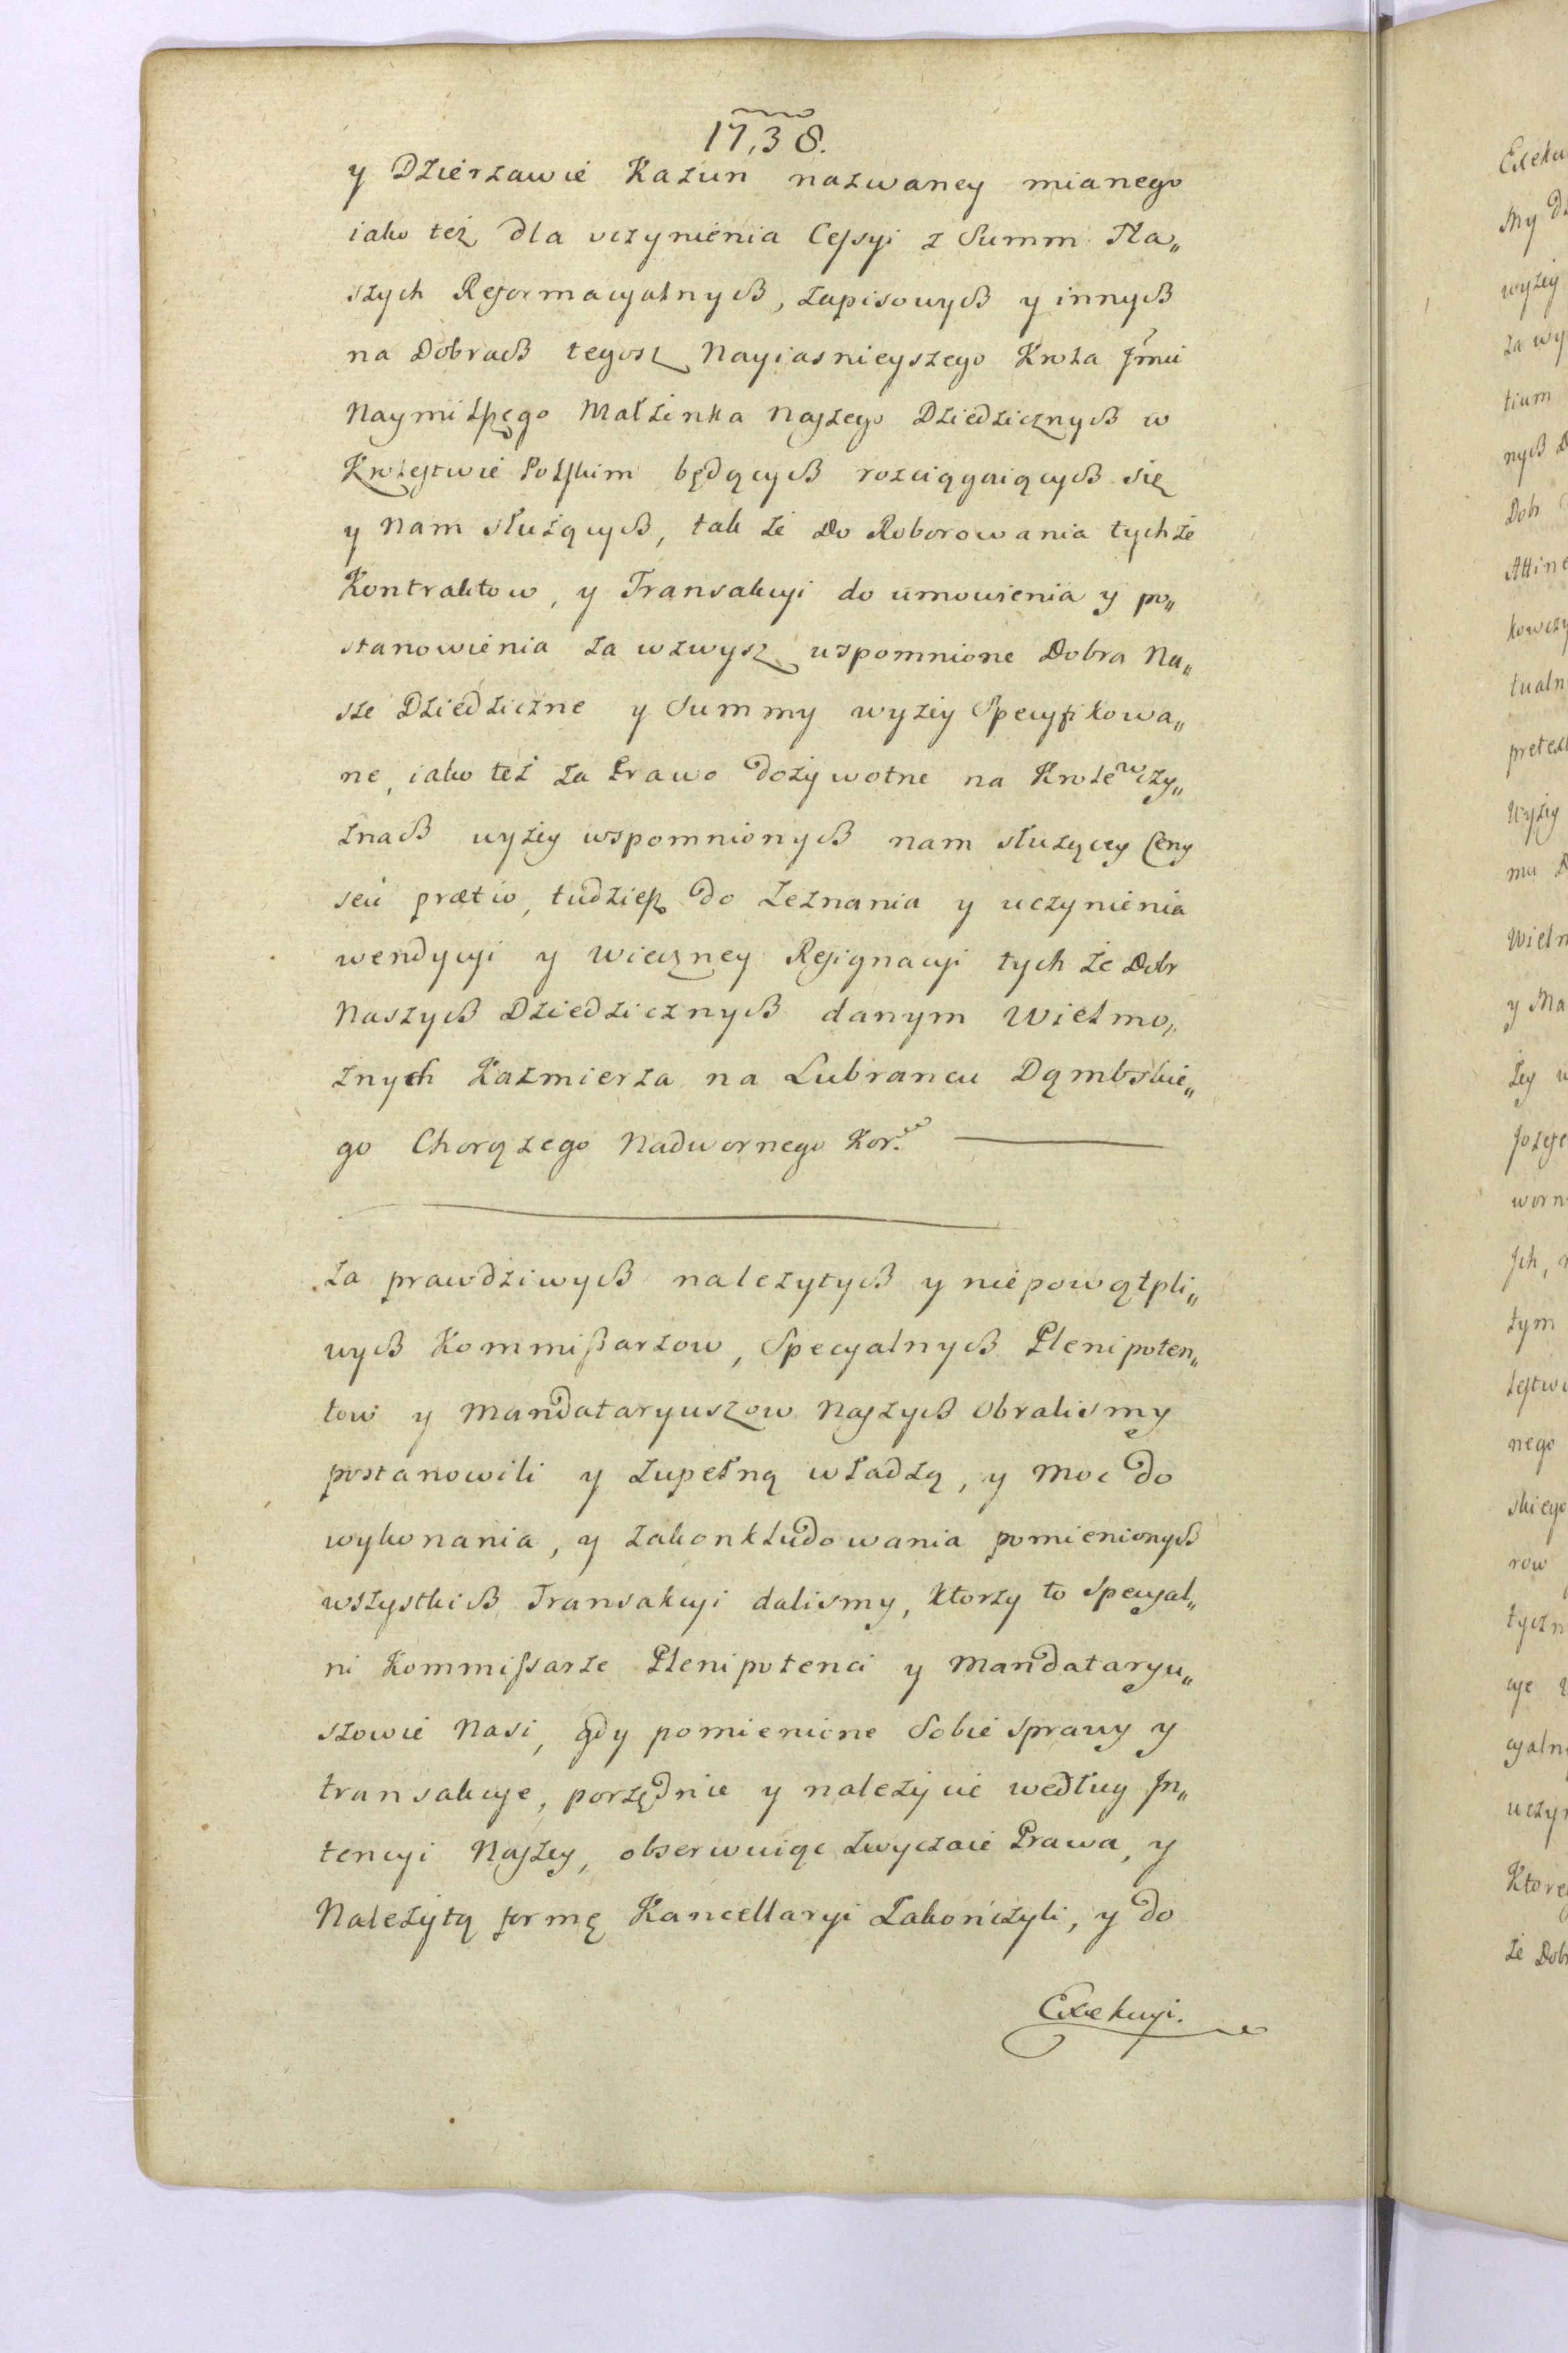 17,38.
y Dzierzawie Kazun nazwaney mianego
iako też dla uczynienia Cessyi z Summ Na„
szych Reformacyalnych, zapisowych y innych
na Dobrach tegosz Nayiasnieyszego Krola Jmci
Naymilszego Małżinka Naszego Dziedzicznych w
Krolestwie Polskim będących rozciągaiących się
y Nam służących, tak że do Roborowania tychże
Kontraktow, y Transakcyi do umowienia y po„
stanowienia za wzwysz wspomnione Dobra Na„
sze Dziedziczne y Summy wyżey Specyfikowa„
ne, iako też za Prawo dożywotne na Krolewczy„
znach wyżey wspomnionych nam służącey Ceny
seu prætio, tudziesz do Zeznania y uczynienia
wendycyi y wieczney Resignacyi tych że Dobr
Naszych Dziedzicznych danym Wielmo„
żnych Kazmierza na Lubrancu Dąmbskie„
go Chorążego Nadwornego Kor.
za prawdziwych należytych y niepowątpli„
wych Kommissarzow, Specyalnych Plenipoten„
tow y Mandataryuszow Naszych Obralismy
postanowili y zupełną władzą, y moc do
wykonania, y zakonkludowania pomienionych
wszystkich Transakcyi dalismy, ktorzy to Specyal„
ni Kommissarze Plenipotenci y Mandataryu„
szowie Nasi, gdy pomienione Sobie sprawy y
transakcye, porządnie y należycie według In„
tencyi Naszey, obserwuiąc zwyczaie Prawa, y
Należytą formę Kancellaryi Zakończyli, y do
Exekucyi.
Exeku
My
wyżey
za wy
tium
nych
Dobr
Attine
kowczy
tualn
pretex
Wyżey
mu
Wielm
y Ma
żey
Jozef
worn
Ich,
tym
lestwi
nego
skiego
row
tyczn
cye
cyaln
uczyn
Ktore
że Dob